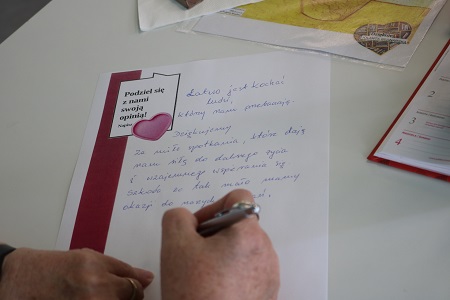 Podziel się
z nami
swoją
opinią!
Łatwo jest kochać
ludzi,
którzy nami
Dziękujemy
Za miłe spotkania, które dają
nam siłę do dalszego życia
i wzajemnego wspierania się
Szkoda że tak mało mamy
okazji do naszych
4